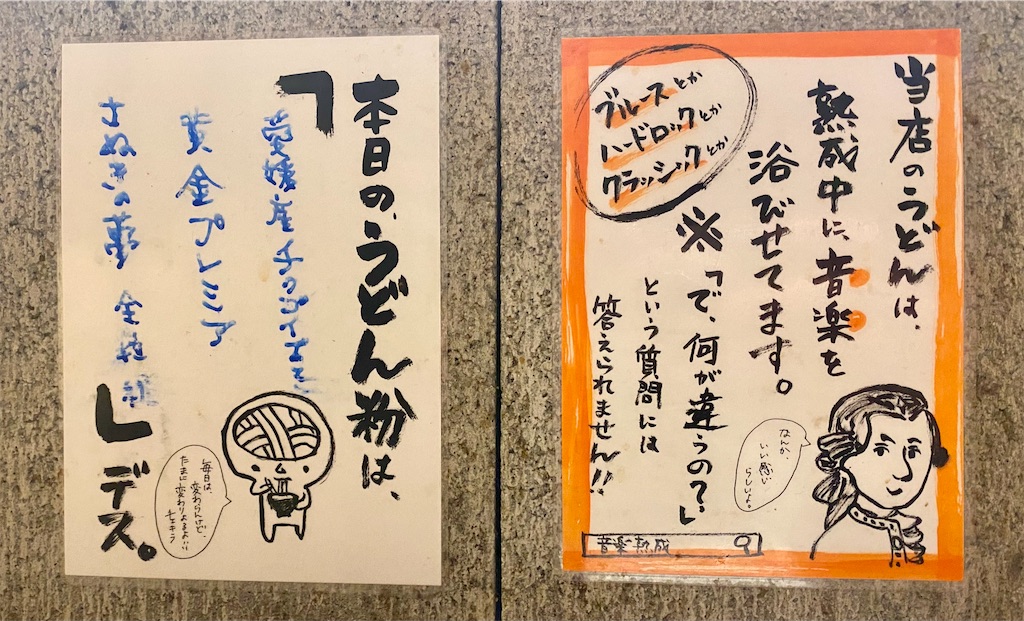 本日の、うどん粉は、
「
愛媛産チクゴイズミ
黄金プレミア
さぬきの夢
」デス。
毎日は、変わらんけど、
たまに変わりよるよ
チェキラ
当店のうどんは、
熟成中に、音楽を
浴びせてます。
ブルースとか
ハードロックとか
クラッシックとか
※「で、何が違うの?」
という質問には
答えられません!!
なんか、
いい感じ
らしいよ。
音楽熟成